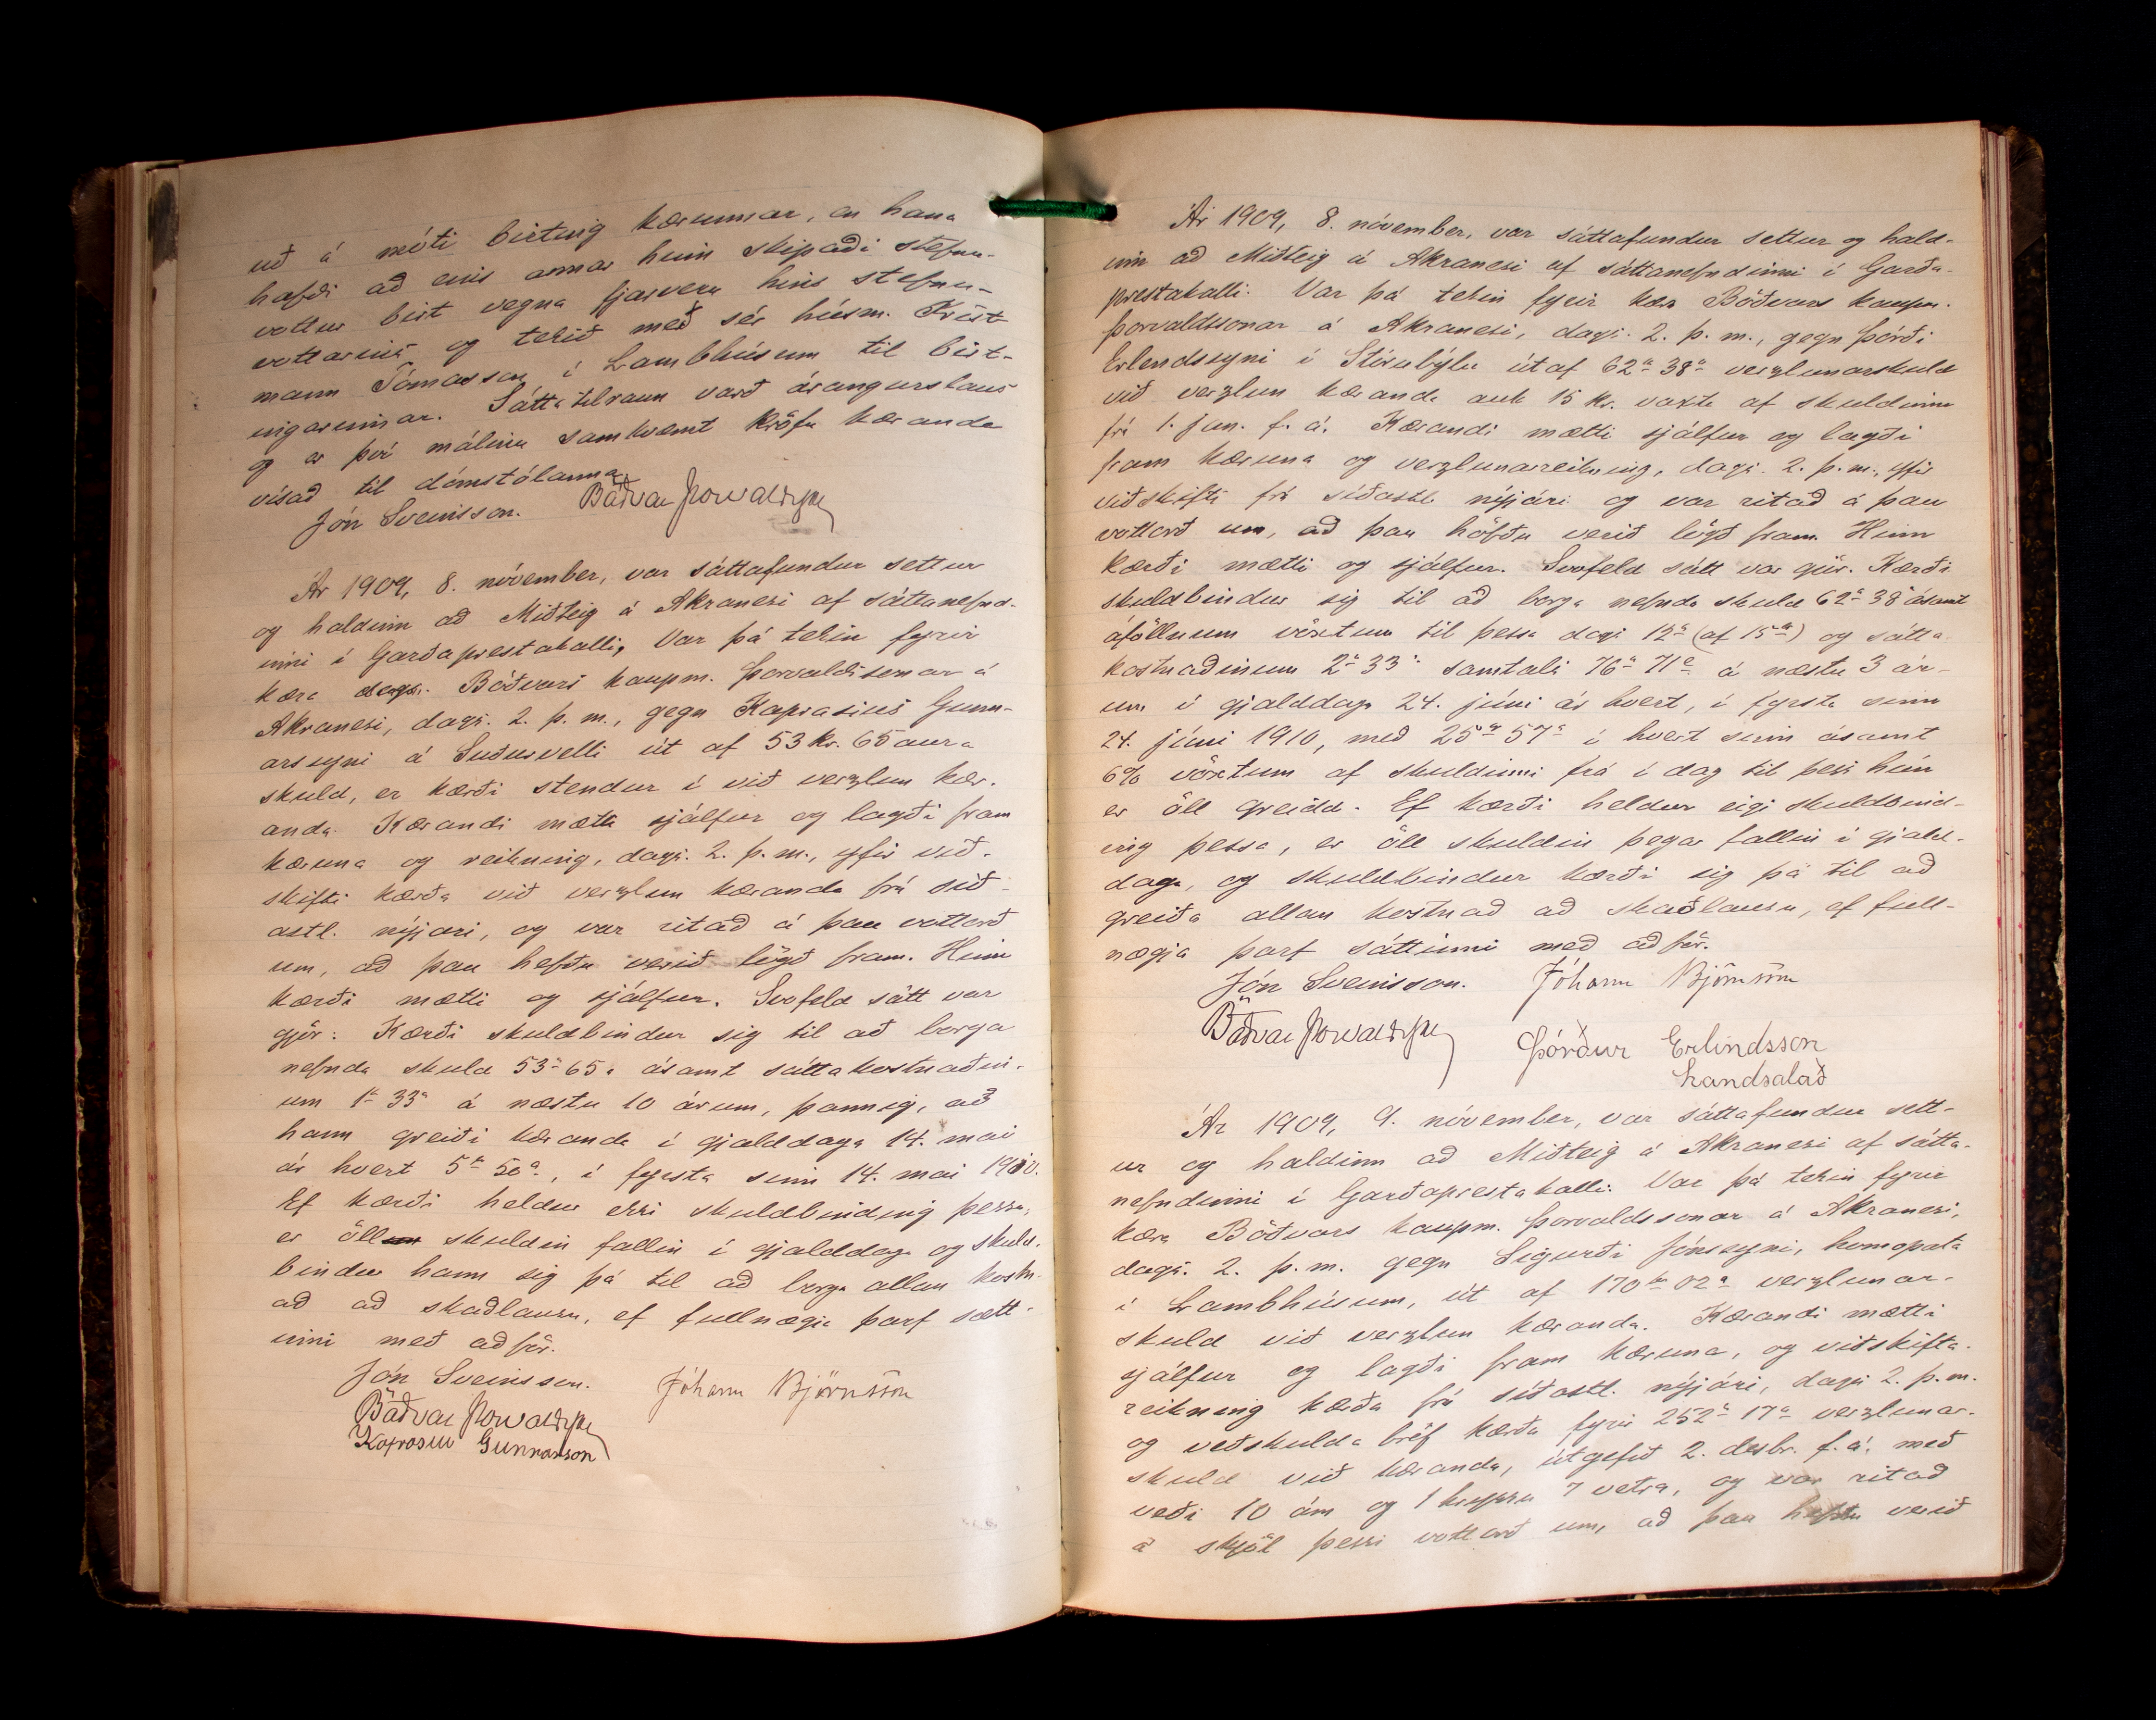 uð á móti birting kærunnar, en hana
hafði að eins annar hinn skipaði stefnu-
vottur birt vegna fjarveru hins stefnu-
vottarins og tekið með sér húsm. Krist-
mann Tómasson í Lambhúsum til birt-
ingarinnar. Sáttatilraun varð árangurslaus
og er því málinu samkvæmt kröfu kæranda
vísað til dómstólanna.
Jón Sveinsson. Böðvar Þorvaldsson
Ár 1909, 8. nóvember, var sáttafundur settur
og haldinn að Miðteig á Akranesi af sáttanefnd-
inni í Garðaprestakalli. Var þá tekin fyrir
kæra dags. Böðvars kaupm. Þorvaldssonar á
Akranesi, dags. 2. þ. m., gegn Kaprasíus Gunn-
arssyni á Suðurvelli út af 53 kr. 65 aura
skuld, er kærði stendur í við verzlun kær-
anda. Kærandi mætti sjálfur og lagði fram
kæruna og reikning, dags. 2. þ. m., yfir við-
skifti kærða við verzlun kæranda frá síð-
astl. nýjári, og var ritað á þau vottorð
um, að þau hefðu verið lögð fram. Hinn
kærði mætti og sjálfur. Svofeld sátt var
gjör: Kærði skuldbindur sig til að borga
nefnda skuld 53 kr 65 a ásamt sáttakostnaðin-
um 1 kr 33 a á næstu 10 árum, þannig, að
hann greiði kæranda í gjalddaga 14. maí
ár hvert 5 kr 50 a., í fyrsta sinn 14. maí 1910.
Ef kærði heldur ekki skuldbinding þessa,
er öll skuldin fallin í gjalddaga og skuld-
bindur hann sig þá til að borga allan kostn-
að að skaðlausu, ef fullnægja þarf sætt-
inni með aðför.
Jón Sveinsson. Jóhann Björnsson
Böðvar Þorvaldsson
Kaprasíus Gunnarsson
Ár 1909, 8. nóvember, var sáttafundur settur og hald-
inn að Miðteig á Akranesi af sáttanefndinni í Garða-
prestakalli. Var þá tekin fyrir kæra Böðvars kaupm.
Þorvaldssonar á Akranesi, dags. 2. þ. m., gegn Þórði
Erlendssyni í Stórubýlu útaf 62 kr 38 a verzlunarskuld
við verzlun kæranda auk 15 kr. vaxta af skuldinni
frá 1. jan. f. á. Kærandi mætti sjálfur og lagði
fram kæruna og verzlunarreikning, dags. 2. þ. m., yfir
viðskifti frá síðastl. nýjári og var ritað á þau
vottorð um, að þau höfðu verið lögð fram. Hinn
kærði mætti og sjálfur. Svofeld sátt var gjör. Kærði
skuldbindur sig til að borga nefnda skuld 62 kr 38 a ásamt
áföllnum vöxtum til þessa dags 12 kr (af 15 kr) og sátta
kostnaðinum 2 kr 33 a samtals 76 kr 71 a á næstu 3 ár-
um í gjalddaga 24. júní ár hvert, í fyrsta sinn
24. júní 1910, með 25 kr 57 a í hvert sinn ásamt
6% vöxtum af skuldinni frá í dag til þess hún
er öll greidd. Ef kærði heldur eigi skuldbind-
ing þessa, er öll skuldin þegar fallin í gjald-
daga, og skuldbindur kærði sig þá til að
greiða allan kostnað að skaðlausu, ef full-
nægja þarf sáttinni með aðför.
Jón Sveinsson. Jóhann Björnsson
Böðvar Þorvaldsson Þórður Erlindsson
handsalað
Ár 1909, 9. nóvember, var sáttafundur sett-
ur og haldinn að Miðteig á Akranesi af sátta-
nefndinni í Garðaprestakalli. Var þá tekin fyrir
kæra Böðvars kaupm. Þorvaldssonar á Akranesi,
dags. 2. þ. m. gegn Sigurði Jónssyni, homopata
í Lambhúsum, út af 170 kr 02 a verzlunar-
skuld við verzlun kæranda. Kærandi mætti
sjálfur og lagði fram kæruna, og viðskifta-
reikning kærða frá síðastl. nýjári, dags 2. þ. m.
og veðskuldabréf kærða fyrir 252 kr 17 a verzlunar-
skuld við kæranda, útgefið 2. desbr. f. á. með
veði í 10 ám og 1 hryssu 7 vetra, og var ritað
á skjöl þessi vottorð um, að þau hefðu verið